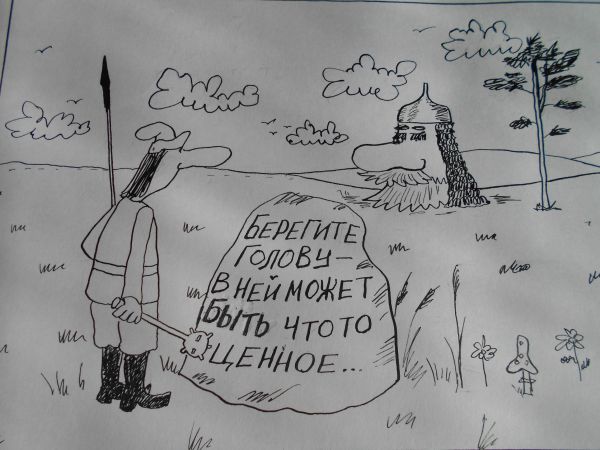 БЕРЕГИТЕ
ГОЛОВУ-
В НЕЙ МОЖЕТ
БЫТЬ ЧТО ТО
ЦЕННОЕ...